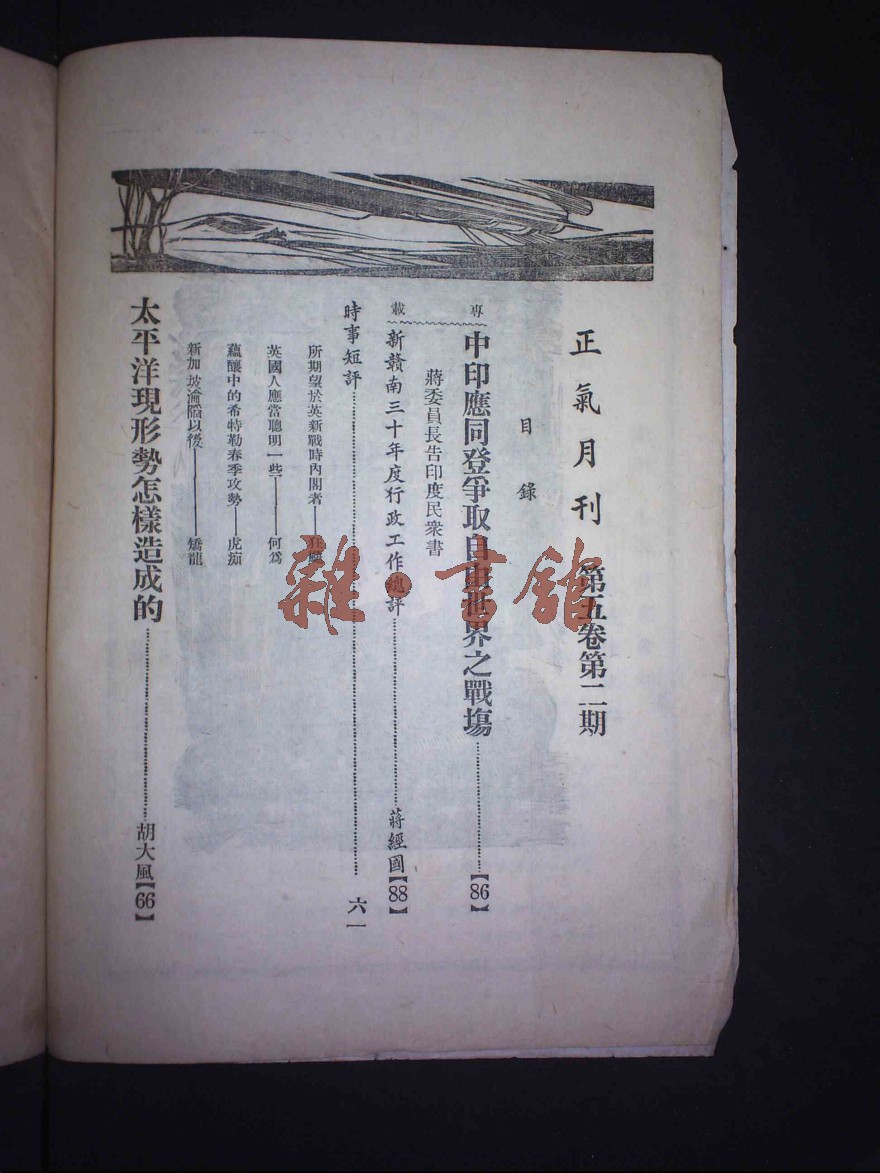 正氣月刊 第五卷第二期
目錄
專載
中印應同登爭取自由世界之戰塲……【86】
蔣委員長告印度民衆書
新贛南三十年度行政工作總評……蔣經國【88】
時事短評……六一
所期望於英新戰時內閣者——狂飈
英國人應當聰明一些——何爲
蘊釀中的希特勒春季攻勢——虎痴
新加坡淪陷以後——矯龍
太平洋現形勢怎樣造成的……胡大風【66】
雜·書舘